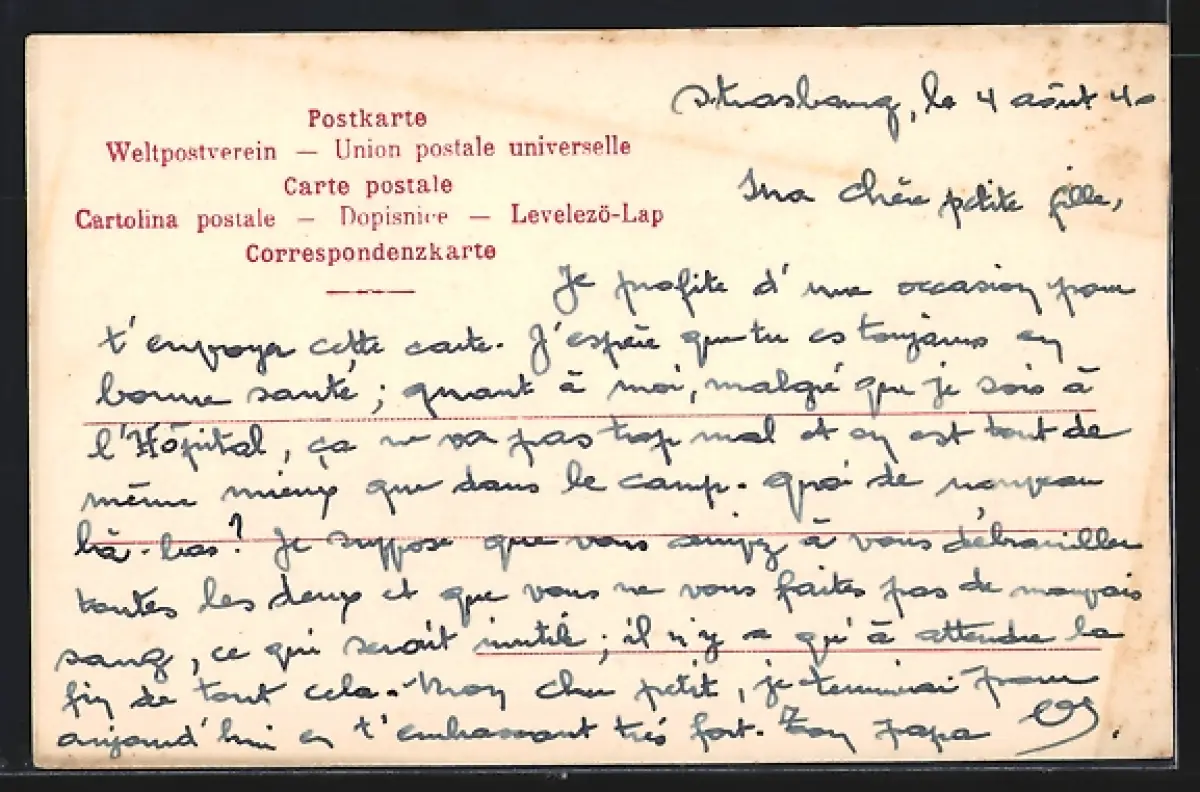 Postkarte
Weltpostverein — Union postale universelle
Carte postale
Cartolina postale — Dopisnice — Levelezö-Lap
Correspondenzkarte
Strasbourg, le 4 août 40
Ma chère petite fille,
Je profite d'une occasion pour
t'envoyer cette carte. J'espère que tu es toujours en
bonne santé ; quant à moi, malgré que je sois à
l'Hôpital, ça ne va pas trop mal et on est tout de
même mieux que dans le camp. Quoi de nouveau
là-bas ? Je suppose que vous arrivez à vous débrouiller
toutes les deux et que vous ne vous faites pas de mauvais
sang, ce qui serait inutile ; il n'y a qu'à attendre la
fin de tout cela. Mon cher petit, je terminerai pour
aujourd'hui en t'embrassant très fort. Ton papa